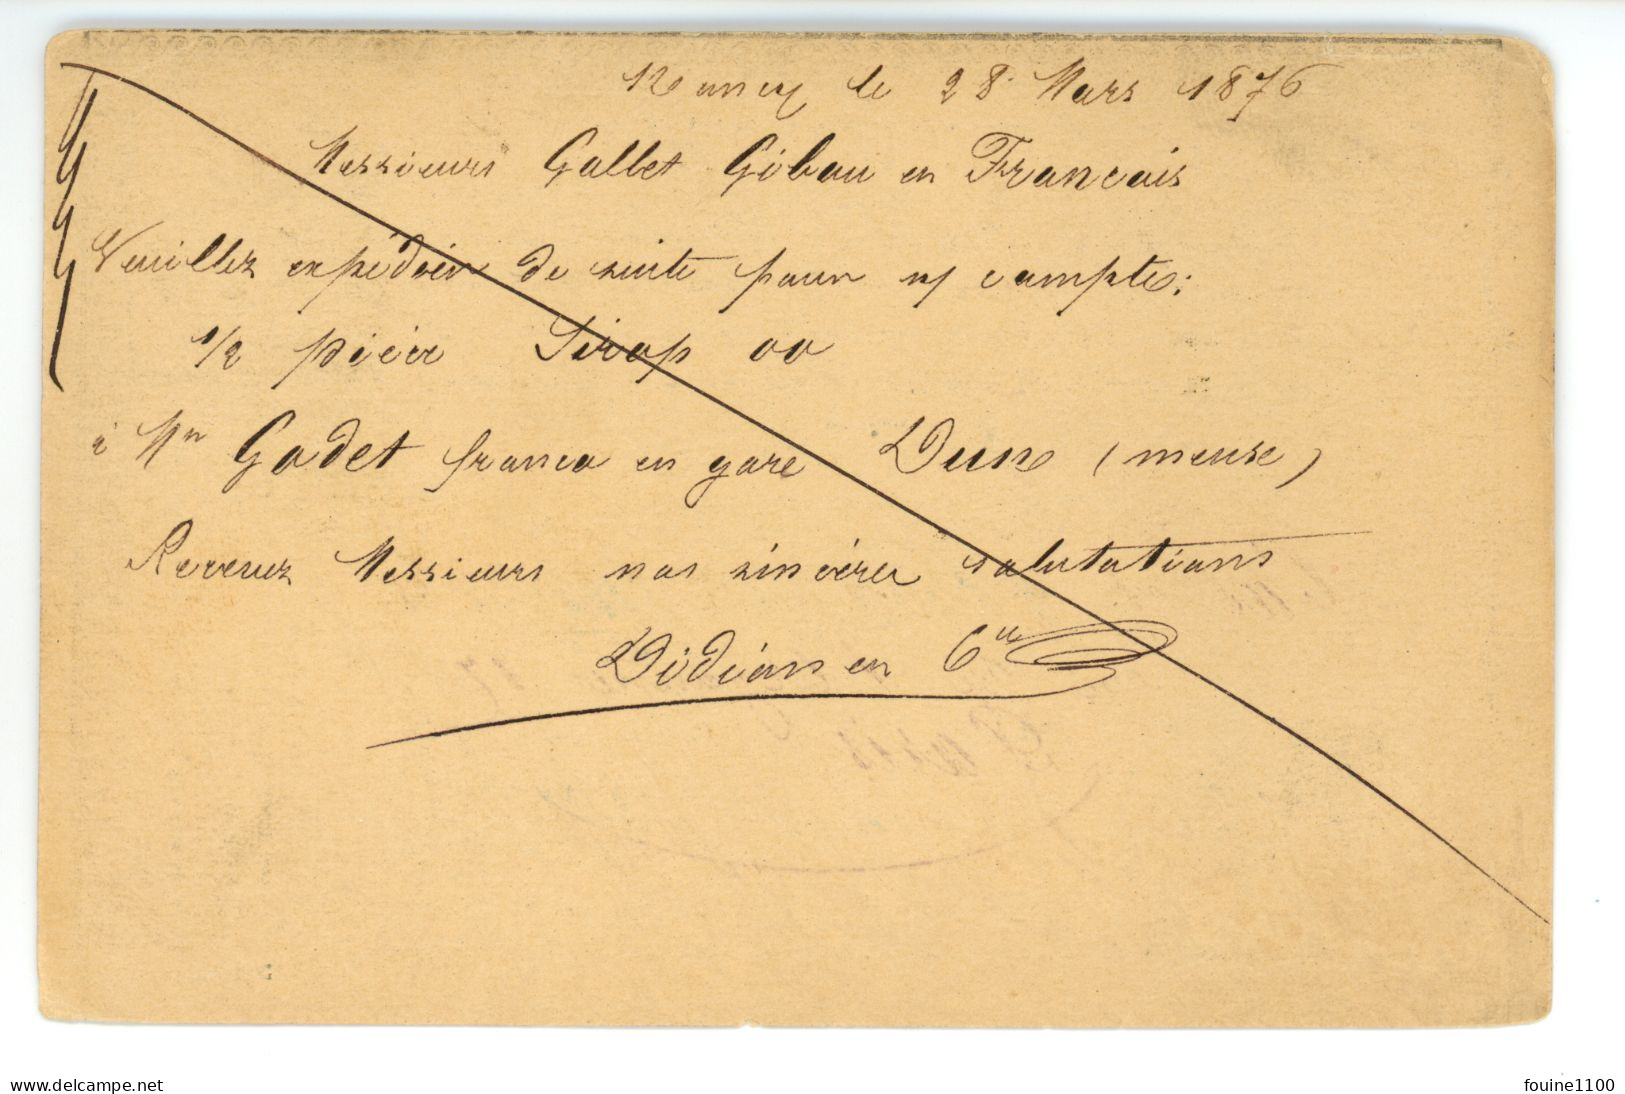 Nancy le 28 Mars 1876
Messieurs Gallet Gibau en Francais
Veuillez expédier de suite pour n/ compte:
1/2 pièce Sirop OO
à Mr Godet franco en gare Dun (meuse)
Recevez Messieurs nos sincères salutations
Didion en Cie
www.delcampe.net
fouine1100